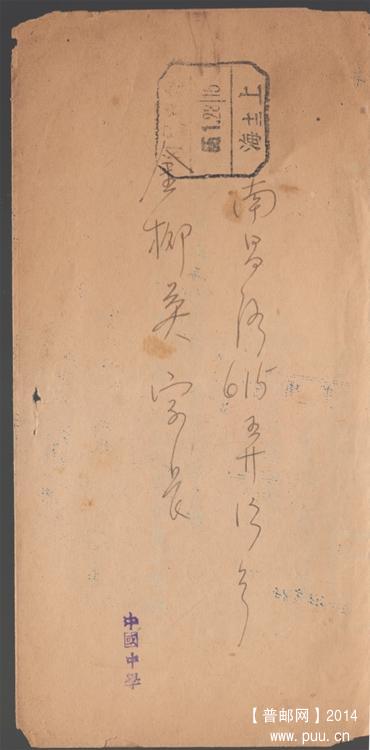 上海
1.28
南昌路615弄12号
金柳英家長
中國中學
【普邮网】2014
www.puu.cn